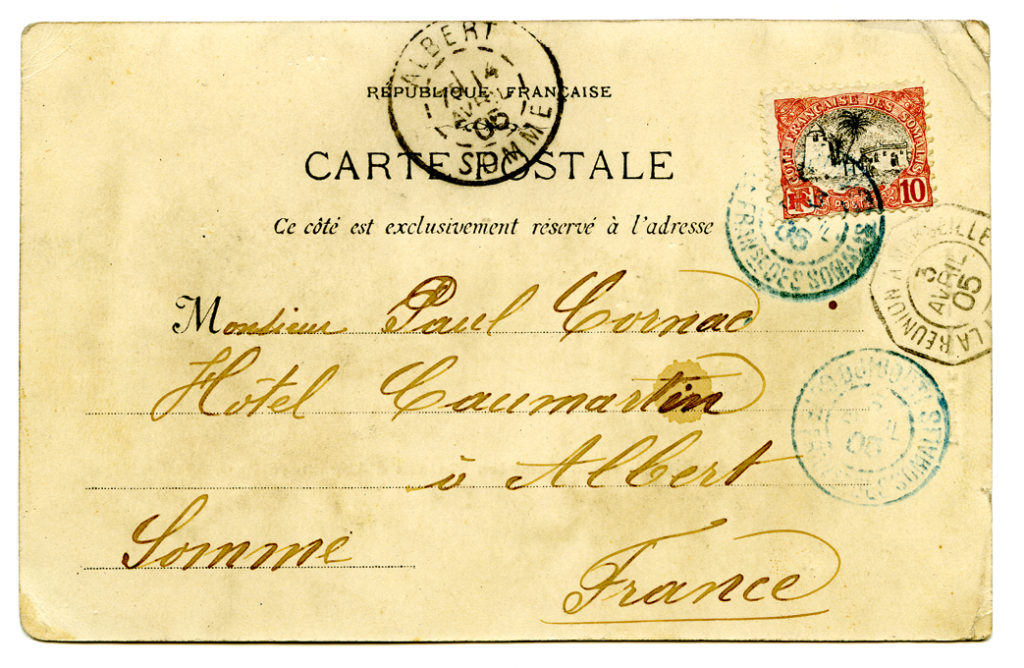 ALBERT
14
AVRIL
05
SOMME
RÉPUBLIQUE FRANÇAISE
CARTE POSTALE
Ce côté est exclusivement réservé à l'adresse
CÔTE FRANÇAISE DES SOMALIS
RF
POSTES
10
DES SOMALIS
05
LA RÉUNION A MARSEILLE
3
AVRIL
05
Monsieur Paul Cornac
Hôtel Caumartin
à Albert
Somme
France
DJIBOUTI
05
SOMALIS